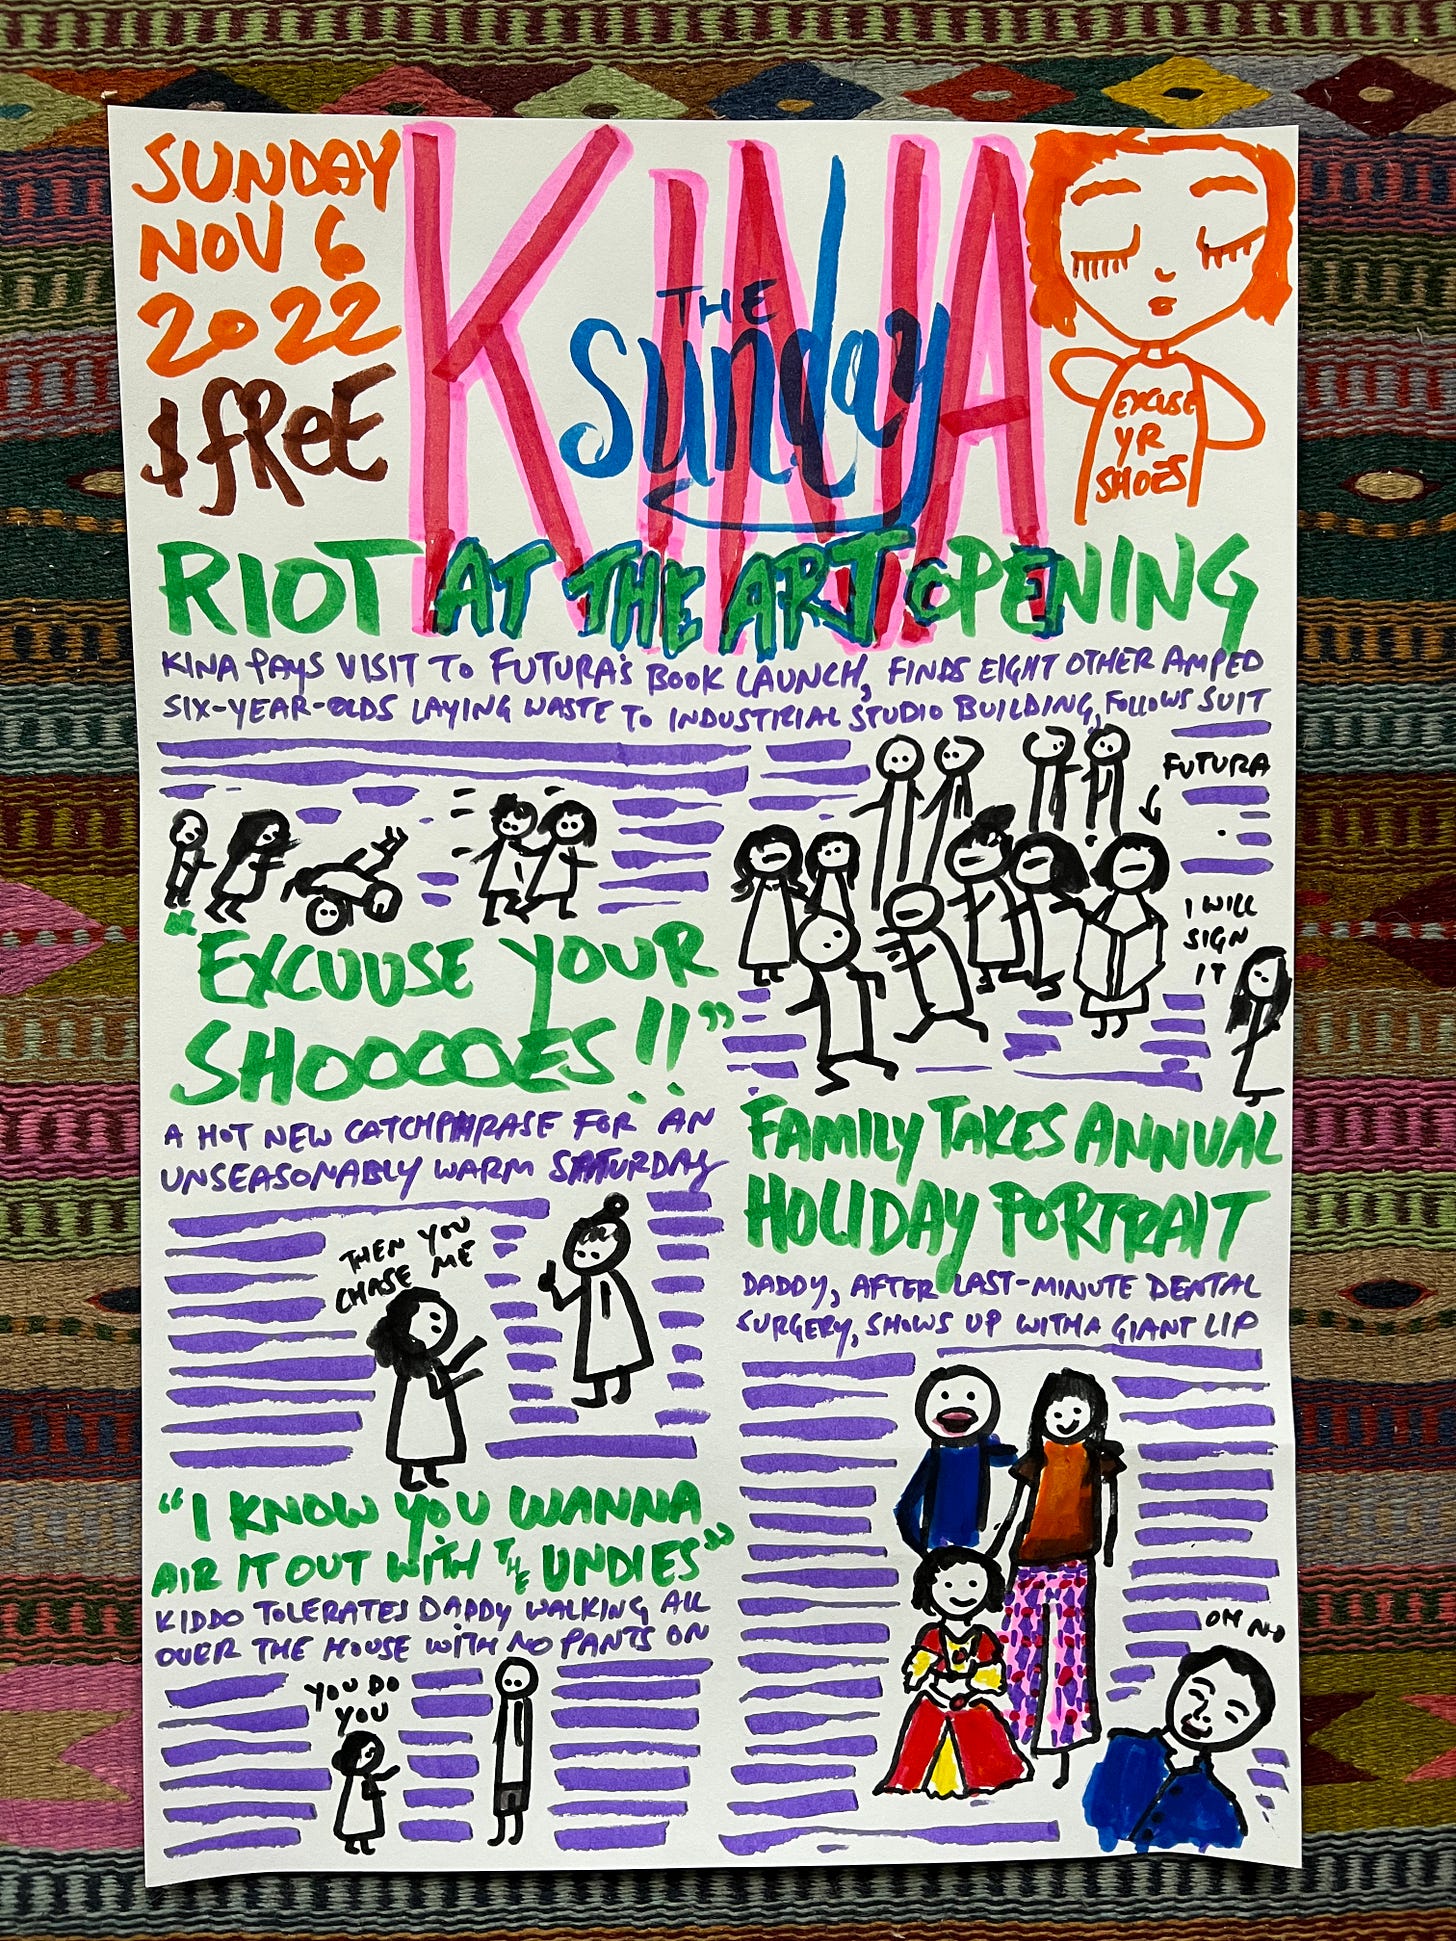 SUNDAY
NOV 6
2022
$ FREE
KINA
THE
Sunday
EXCUSE
YR
SHOES
RIOT AT THE ART OPENING
KINA PAYS VISIT TO FUTURA'S BOOK LAUNCH, FINDS EIGHT OTHER AMPED
SIX-YEAR-OLDS LAYING WASTE TO INDUSTRIAL STUDIO BUILDING, FOLLOWS SUIT
FUTURA
I WILL
SIGN
IT
"EXCUUUSE YOUR
SHOOOOOES!!"
A HOT NEW CATCHPHRASE FOR AN
UNSEASONABLY WARM SATURDAY
THEN YOU
CHASE ME
"I KNOW YOU WANNA
AIR IT OUT WITH THE UNDIES"
KIDDO TOLERATES DADDY WALKING ALL
OVER THE HOUSE WITH NO PANTS ON
YOU DO
YOU
FAMILY TAKES ANNUAL
HOLIDAY PORTRAIT
DADDY, AFTER LAST-MINUTE DENTAL
SURGERY, SHOWS UP WITH A GIANT LIP
OH NO